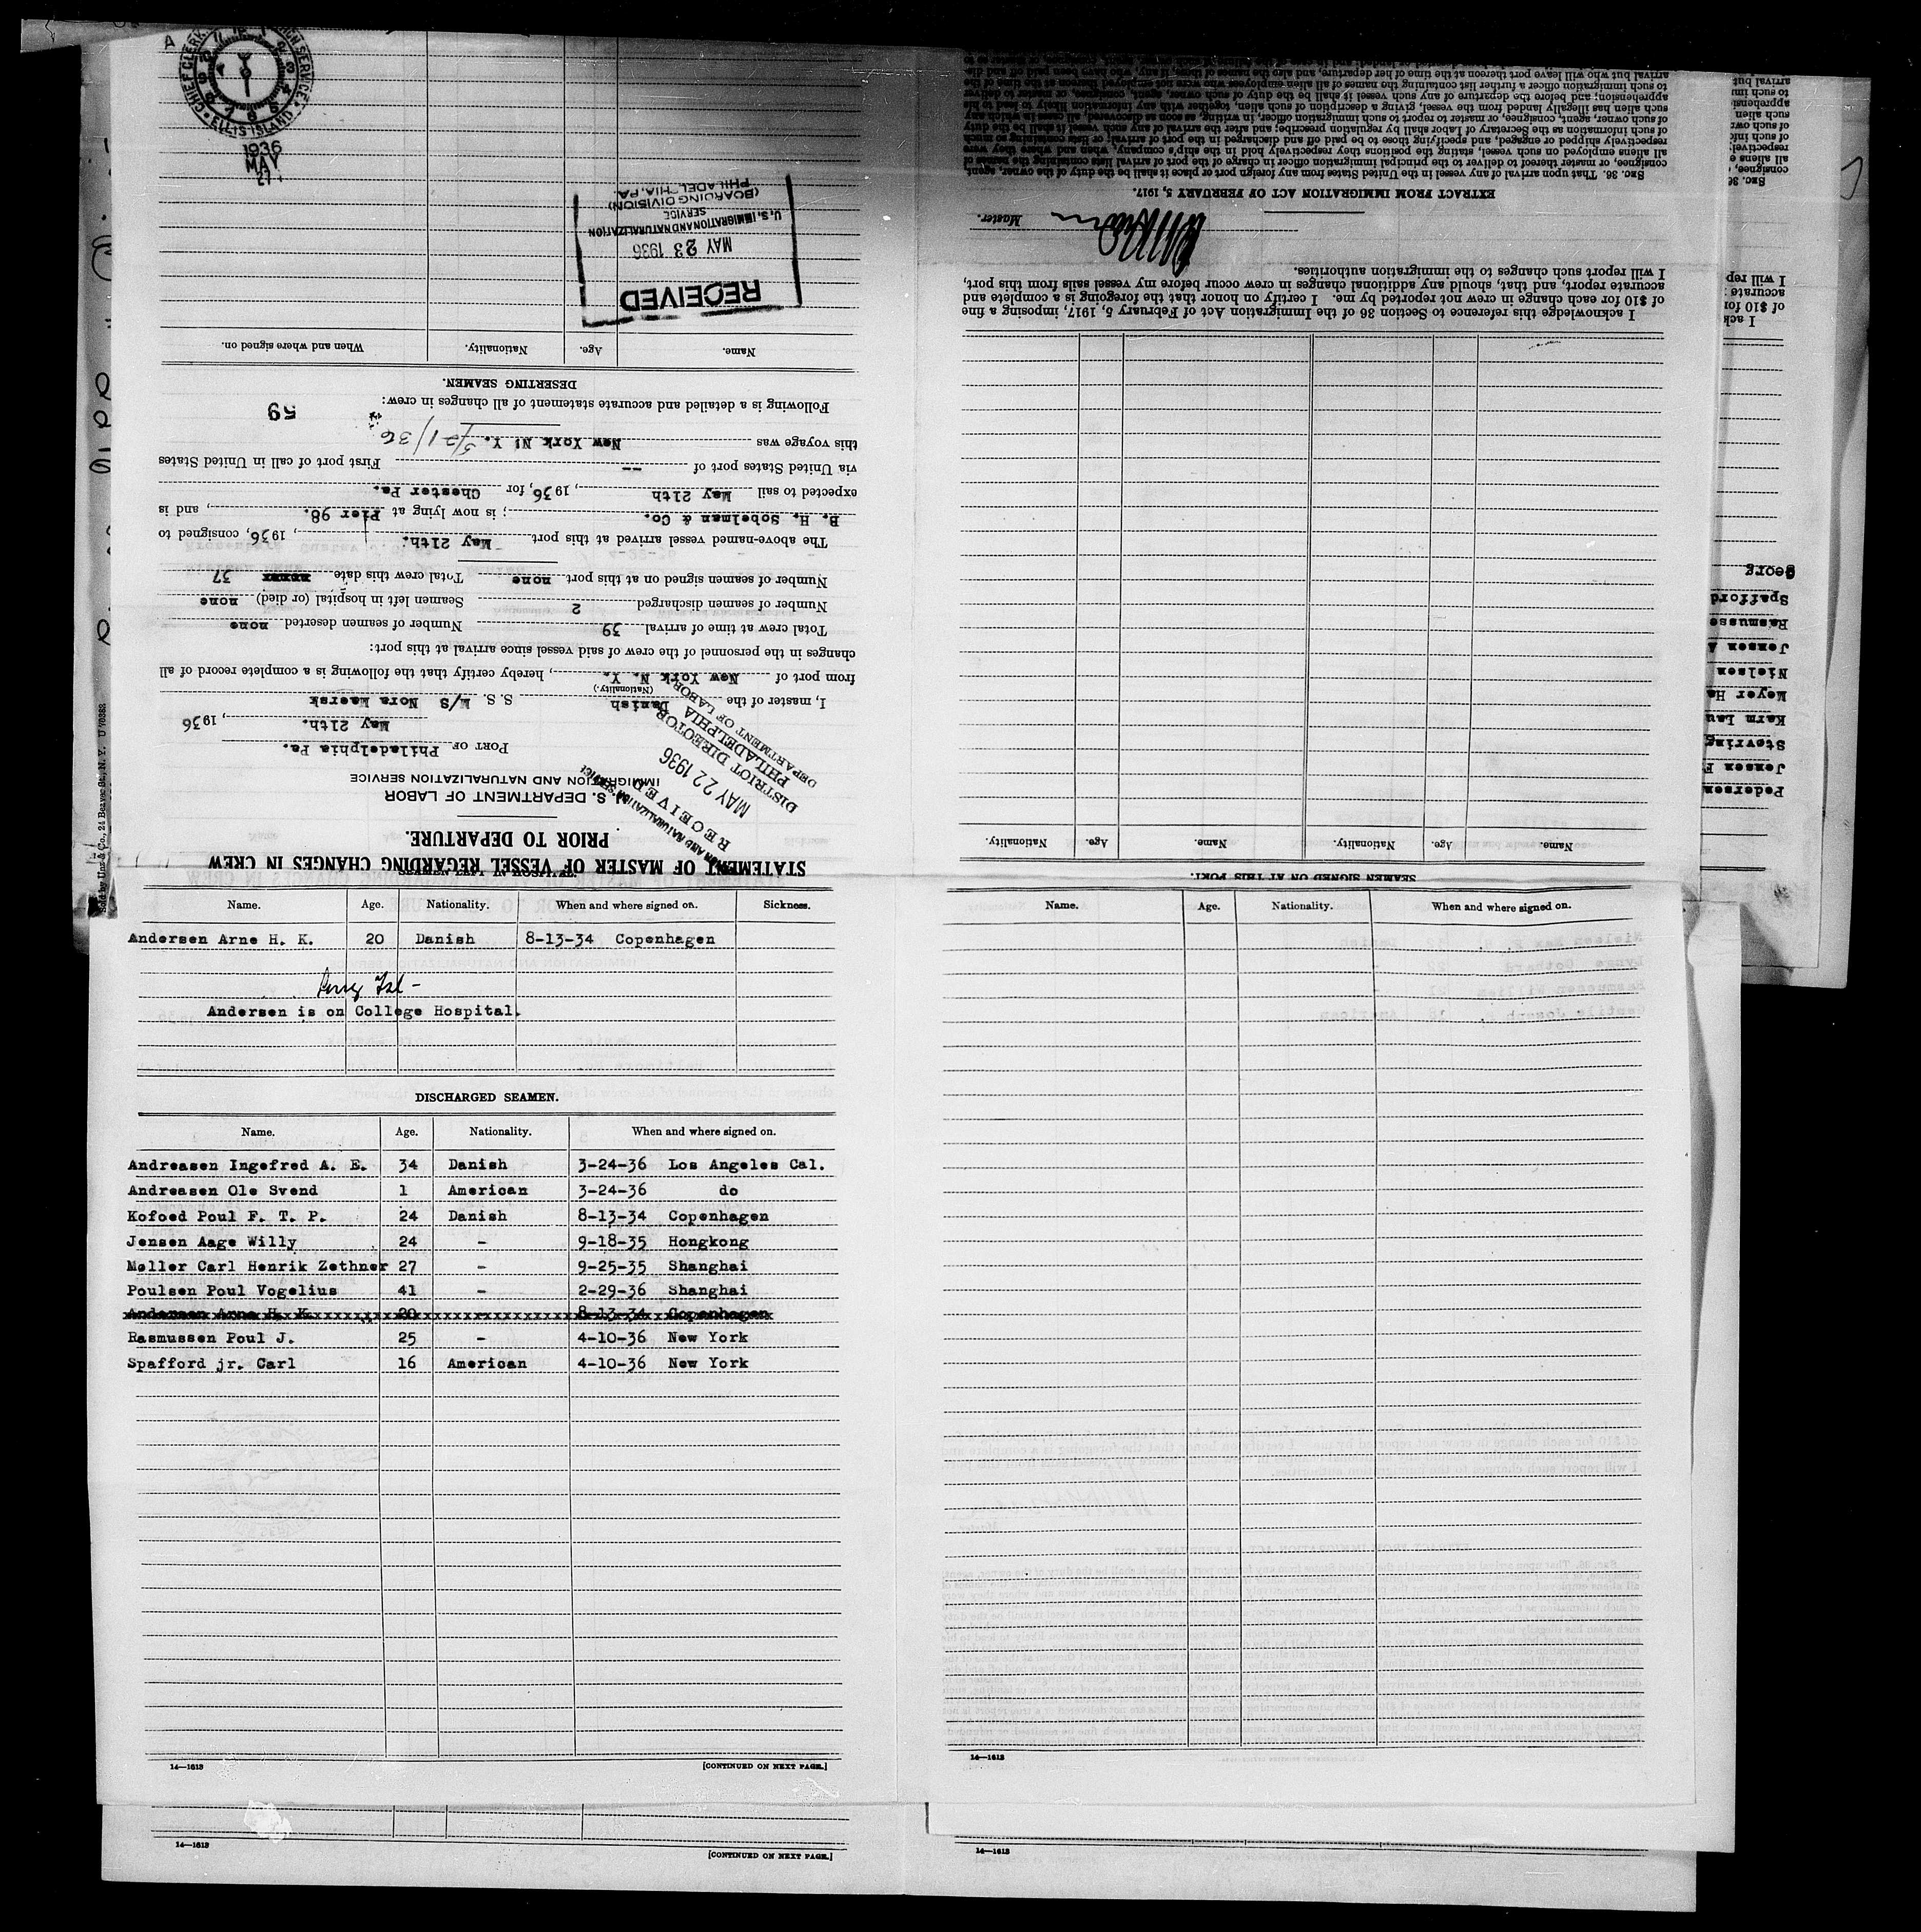 CHIEF CLERK
ELLIS ISLAND
1936
MAY
27
RECEIVED
MAY 23 1936
U.S. IMMIGRATION AND NATURALIZATION
SERVICE
(BOARDING DIVISION)
PHILADELPHIA, PA.
STATEMENT OF MASTER OF VESSEL REGARDING CHANGES IN CREW
PRIOR TO DEPARTURE.
U. S. DEPARTMENT OF LABOR
IMMIGRATION AND NATURALIZATION SERVICE
RECEIVED
MAY 22 1936
DISTRICT DIRECTOR
PHILADELPHIA
DEPARTMENT OF LABOR
PORT OF Philadelphia Pa.
May 21th. , 1936
I, master of the Danish S. S. M/S Nora Maersk
(Nationality.)
from port of New York N. Y. , hereby certify that the following is a complete record of all
changes in the personnel of the crew of said vessel since arrival at this port:
Total crew at time of arrival 39 Number of seamen deserted none
Number of seamen discharged 2 Seamen left in hospital (or died) none
Number of seamen signed on at this port none Total crew this date 37
The above-named vessel arrived at this port May 21th. , 1936, consigned to
B. H. Sobelman & Co. ; is now lying at Pier 98. , and is
expected to sail May 21th , 1936, for Chester Pa.
via United States port of -- First port of call in United States
this voyage was New York N. Y. 5/21/36
Following is a detailed and accurate statement of all changes in crew:
59
DESERTING SEAMEN.
Name. Age. Nationality. When and where signed on.
SEAMEN SIGNED ON AT THIS PORT.
Name. Age. Nationality. Name. Age. Nationality.
I acknowledge this reference to Section 36 of the Immigration Act of February 5, 1917, imposing a fine
of $10 for each change in crew not reported by me. I certify on honor that the foregoing is a complete and
accurate report, and that, should any additional changes in crew occur before my vessel sails from this port,
I will report such changes to the immigration authorities.
Master.
EXTRACT FROM IMMIGRATION ACT OF FEBRUARY 5, 1917.
SEC. 36. That upon arrival of any vessel in the United States from any foreign port or place it shall be the duty of the owner, agent,
consignee, or master thereof to deliver to the principal immigration officer in charge of the port of arrival lists containing the names of
all aliens employed on such vessel, stating the positions they respectively hold in the ship's company, when and where they were
respectively shipped or engaged, and specifying those to be paid off and discharged in the port of arrival; or lists containing so much
of such information as the Secretary of Labor shall by regulation prescribe; and after the arrival of any such vessel it shall be the duty
of such owner, agent, consignee, or master to report to such immigration officer, in writing, as soon as discovered, all cases in which any
such alien has illegally landed from the vessel, giving a description of such alien, together with any information likely to lead to his
apprehension; and before the departure of any such vessel it shall be the duty of such owner, agent, consignee, or master to deliver
to such immigration officer a further list containing the names of all alien employees who were not employed thereon at the time of the
arrival but who will leave port thereon at the time of her departure, and also the names of those, if any, who have been paid off and dis-
Pedersen
Jensen F
Stevring
Karm Lau
Meyer Ha
Nielsen
Jensen A
Rasmusse
Spafford
Georg
Name. Age. Nationality. When and where signed on. Sickness.
Andersen Arne H. K. 20 Danish 8-13-34 Copenhagen
Andersen is on College Hospital.
DISCHARGED SEAMEN.
Name. Age. Nationality. When and where signed on.
Andreasen Ingefred A. E. 34 Danish 3-24-36 Los Angeles Cal.
Andreasen Ole Svend 1 American 3-24-36 do
Kofoed Poul F. T. P. 24 Danish 8-13-34 Copenhagen
Jensen Aage Willy 24 - 9-18-35 Hongkong
Møller Carl Henrik Zethner 27 - 9-25-35 Shanghai
Poulsen Poul Vogelius 41 - 2-29-36 Shanghai
Andersen Arne H. K. 20 - 8-13-34 Copenhagen
Rasmussen Poul J. 25 - 4-10-36 New York
Spafford jr. Carl 16 American 4-10-36 New York
14—1613 [CONTINUED ON NEXT PAGE.]
Name. Age. Nationality. When and where signed on.
14—1613
14—1613 [CONTINUED ON NEXT PAGE.]
14—1613